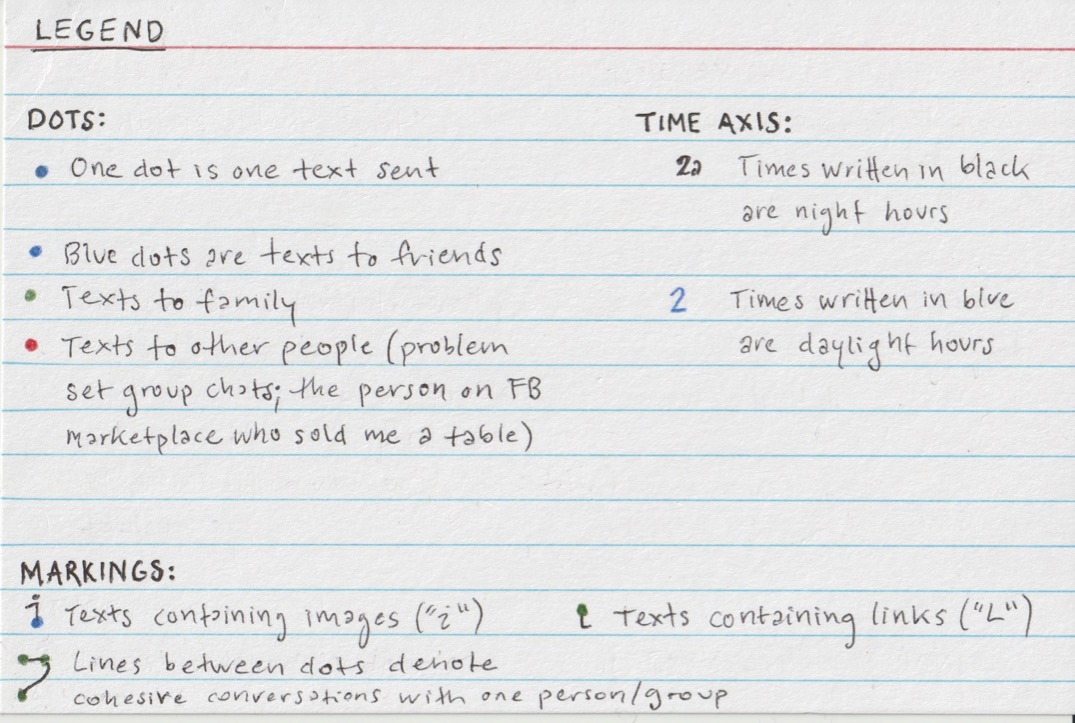 LEGEND
DOTS:
One dot is one text sent
Blue dots are texts to friends
Texts to family
Texts to other people (problem
set group chats; the person on FB
marketplace who sold me a table)
TIME AXIS:
2a Times written in black
are night hours
2 Times written in blue
are daylight hours
MARKINGS:
i Texts containing images ("i")
Texts containing links ("L")
Lines between dots denote
cohesive conversations with one person/group